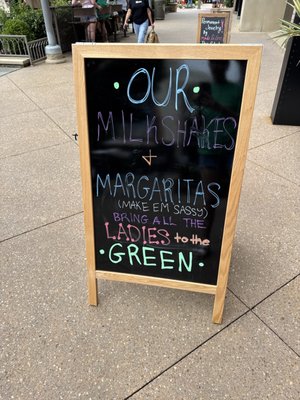 • OUR •
MILKSHAKES
+
MARGARITAS
(MAKE EM SASSY)
BRING ALL THE
LADIES to the
• GREEN •